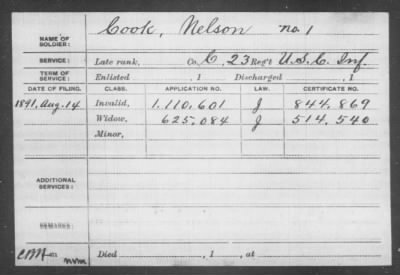 NAME OF SOLDIER: Cook, Nelson no. 1
SERVICE: Late rank, Co. C, 23 Reg't U.S.C. Inf.
TERM OF SERVICE: Enlisted , 1 Discharged , 1
DATE OF FILING. CLASS. APPLICATION NO. LAW. CERTIFICATE NO.
1891, Aug. 14 Invalid, 1.110,601 J 844,869
Widow, 625,084 J 514,540
Minor,
ADDITIONAL SERVICES:
REMARKS:
Died , 1 , at
nvm